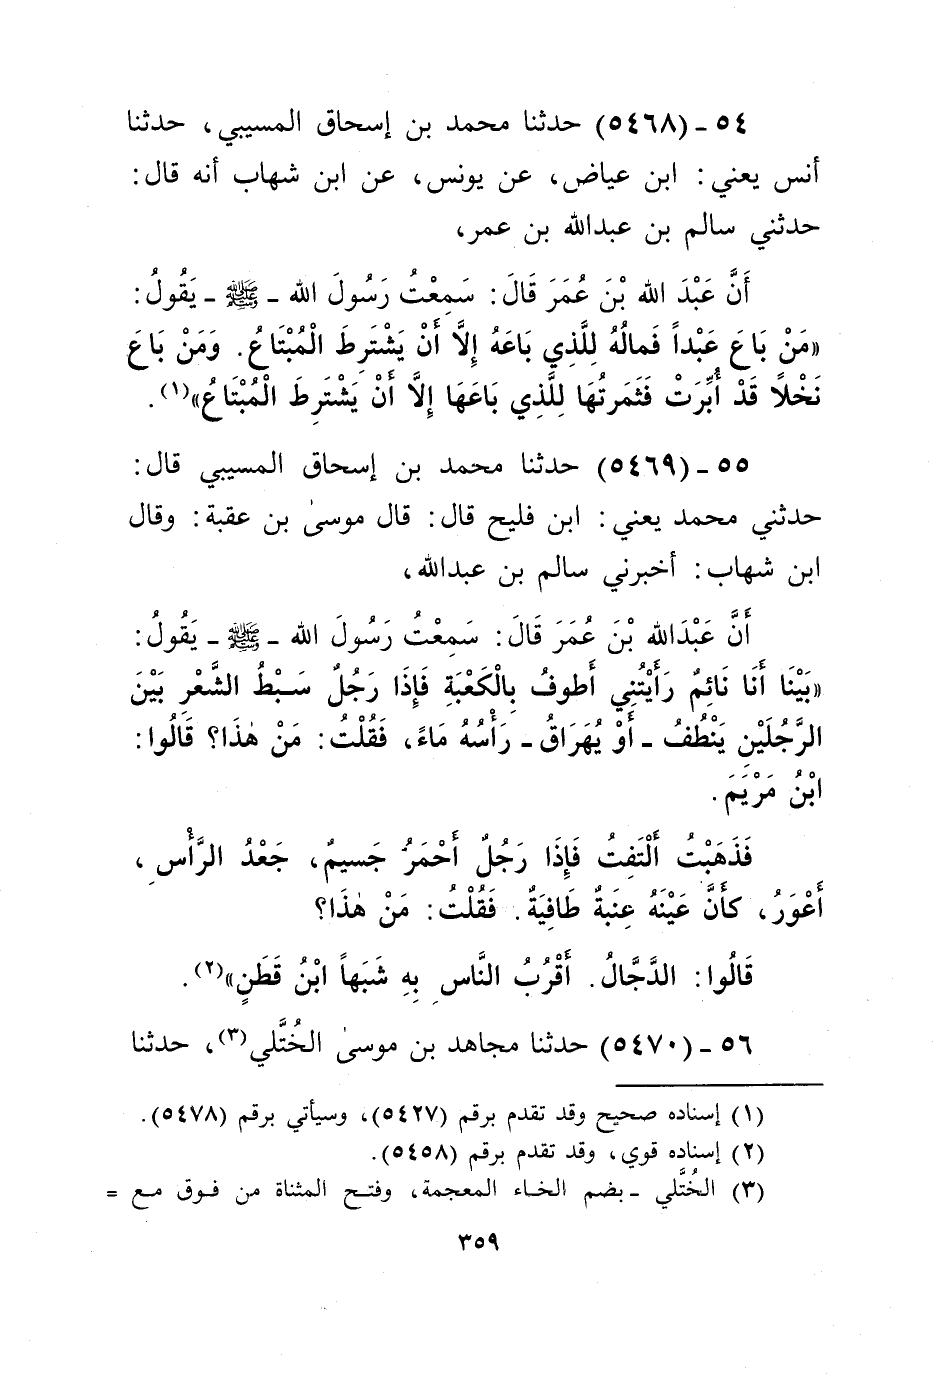 ٥٤ ـ (٥٤٦٨) حدثنا محمد بن إسحاق المسيبي، حدثنا
أنس يعني: ابن عياض، عن يونس، عن ابن شهاب أنه قال:
حدثني سالم بن عبدالله بن عمر،
أَنَّ عَبْدَ الله بْنَ عُمَرَ قَالَ: سَمِعْتُ رَسُولَ الله ـ ﷺ ـ يَقُولُ:
«مَنْ بَاعَ عَبْداً فَمالُهُ لِلَّذِي بَاعَهُ إِلَّا أَنْ يَشْتَرِطَ الْمُبْتَاعُ. وَمَنْ بَاعَ
نَخْلًا قَدْ أُبِّرَتْ فَثَمَرتُهَا لِلَّذِي بَاعَهَا إِلَّا أَنْ يَشْتَرِطَ الْمُبْتَاعُ»(١).
٥٥ ـ (٥٤٦٩) حدثنا محمد بن إسحاق المسيبي قال:
حدثني محمد يعني: ابن فليح قال: قال موسىٰ بن عقبة: وقال
ابن شهاب: أخبرني سالم بن عبدالله،
أَنَّ عَبْدَالله بْنَ عُمَرَ قَالَ: سَمِعْتُ رَسُولَ الله ـ ﷺ ـ يَقُولُ:
«بَيْنَا أَنَا نَائِمٌ رَأَيْتُنِي أَطوفُ بِالْكَعْبَةِ فَإِذَا رَجُلٌ سَبْطُ الشَّعْرِ بَيْنَ
الرَّجُلَيْنِ يَنْطُفُ ـ أَوْ يُهَرَاقُ ـ رَأْسُهُ مَاءً، فَقُلْتُ: مَنْ هٰذَا؟ قَالُوا:
ابْنُ مَرْيَمَ.
فَذَهَبْتُ أَلْتَفِتُ فَإِذَا رَجُلٌ أَحْمَرُ جَسيمٌ، جَعْدُ الرَّأْسِ،
أَعْوَرُ، كأَنَّ عَيْنَهُ عِنَبةٌ طَافِيَةٌ. فَقُلْتُ: مَنْ هٰذَا؟
قَالُوا: الدَّجَّالُ. أَقْرُبُ النَّاسِ بِهِ شَبَهاً ابْنُ قَطَنٍ»(٢).
٥٦ ـ (٥٤٧٠) حدثنا مجاهد بن موسىٰ الخُتَّلي(٣)، حدثنا
(١) إسناده صحيح وقد تقدم برقم (٥٤٢٧)، وسيأتي برقم (٥٤٧٨).
(٢) إسناده قوي، وقد تقدم برقم (٥٤٥٨).
(٣) الخُتَّلي ـ بضم الخاء المعجمة، وفتح المثناة من فوق مع =
٣٥٩